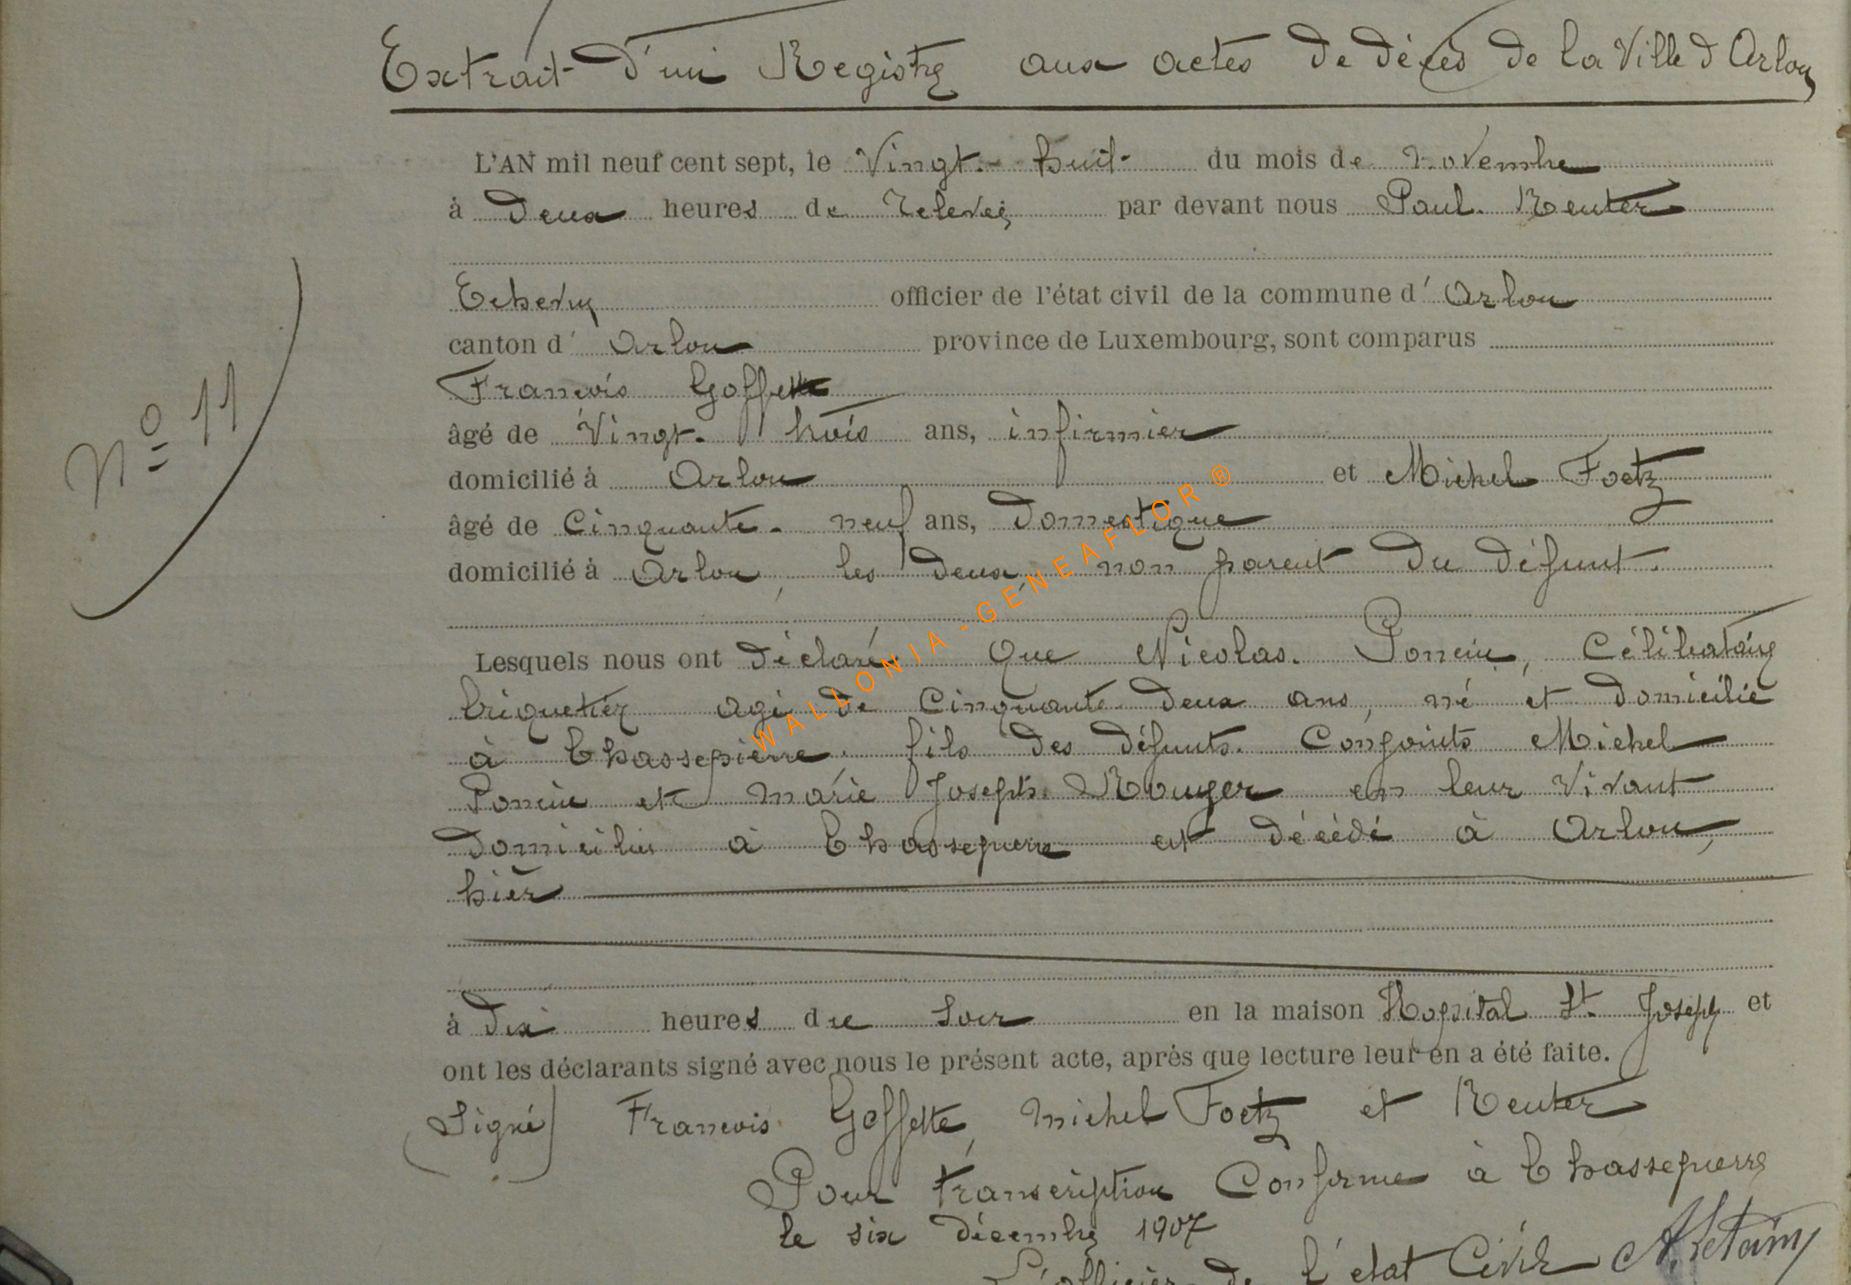 Extrait d'un Registre aux actes de décès de la Ville d Arlon
L'AN mil neuf cent sept, le Vingt-huit du mois de novembre
à deux heures de relevée par devant nous Paul Reuter
Echevin officier de l'état civil de la commune d' Arlon
canton d' Arlon province de Luxembourg, sont comparus
François Goffette
âgé de Vingt-trois ans, infirmier
domicilié à Arlon et Michel Foetz
âgé de Cinquante-neuf ans, domestique
domicilié à Arlon, les deux, non parent du défunt.
Nº 11
Lesquels nous ont déclaré que Nicolas Poncin, célibataire
briquetier agé de cinquante deux ans, né et domicilié
à Chassepierre, fils des défunts conjoints Michel
Poncin et Marie Joseph en leur vivant
domiciliés à Chassepierre est décédé à Arlon,
hier
à dix heures du soir en la maison Hopital St. Joseph et
ont les déclarants signé avec nous le présent acte, après que lecture leur en a été faite.
(Signé) François Goffette, Michel Foetz et Reuter
Pour transcription conforme à Chassepierre
le six décembre 1907
L'officier de l'état Civil
WALLONIA-GENEAFLOR ®